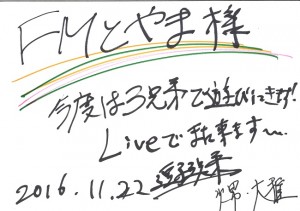 FMとやま様
今度は3兄弟で遊びにきます!
Liveでまた来ます〜
2016.11.22
大雅